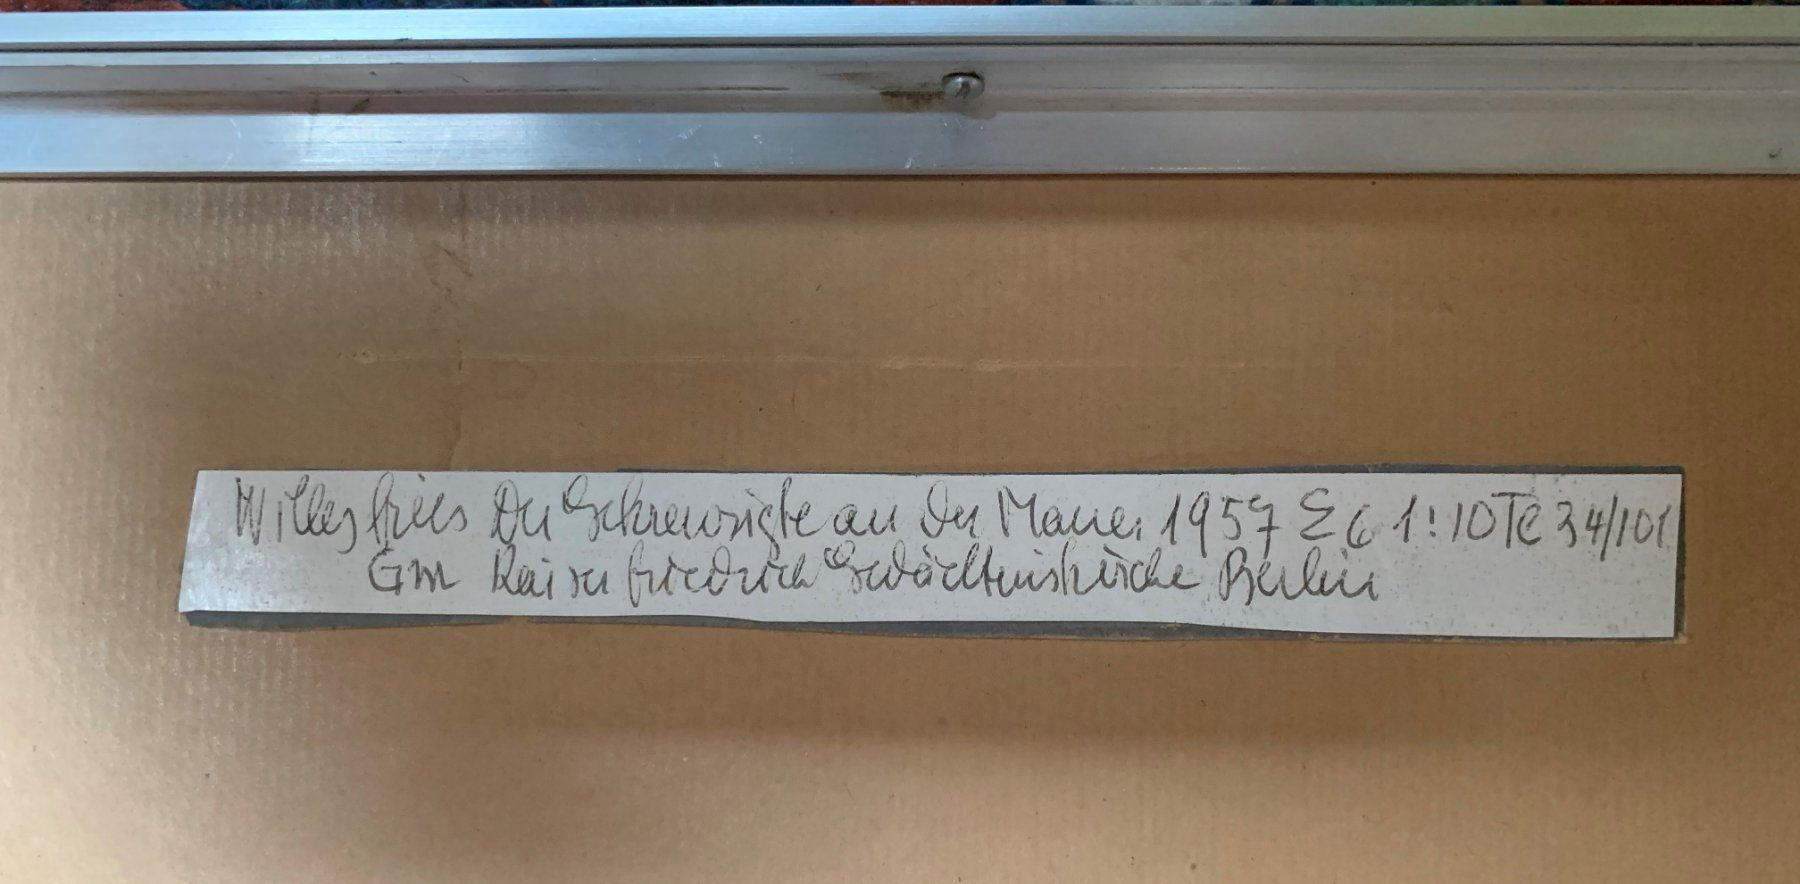 Willy fries Der Gekreuzigte an der Mauer 1957 Σ6 1:10 TC 34/101
Gm Kaiser friedrich Gedächtniskirche Berlin